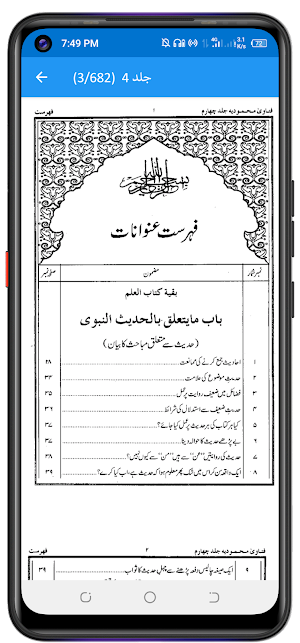 7:49 PM 4G 3.1 K/s 72
جلد 4 (3/682)
فتاویٰ محمودیہ جلد چہارم ۱ فہرست
بسم اللہ الرحمن الرحیم
فہرست عنوانات
نمبر شمار مضمون صفحہ نمبر
بقیة کتاب العلم
باب مایتعلق بالحدیث النبوی
(حدیث سے متعلق مباحث کا بیان)
۱ احادیث جمع کرنے کی ممانعت ۲۸
۲ حدیث موضوع کی علامت ۳۳
۳ فضائل میں ضعیف روایت پر عمل ۳۵
۴ حدیث ضعیف سے استدلال کی شرائط ۳۶
۵ کیا ہر کتاب کی ہر حدیث پر عمل کیا جائے؟ ۳۷
۶ بے پڑھے حدیث کا حوالہ دینا ۳۷
۷ حدیث کی روایتیں "عن" سے ہیں "من" سے کیوں نہیں؟ ۳۸
۸ ایک واقعہ بن کر اس میں شک پھر معلوم ہوا کہ حدیث ہے، اب کیا کرے؟ ۳۹
فتاویٰ محمودیہ جلد چہارم ۲ فہرست
۹ ایک صیغہ چالیس دفعہ پڑھنے سے پہلی حدیث کا ثواب ۳۹